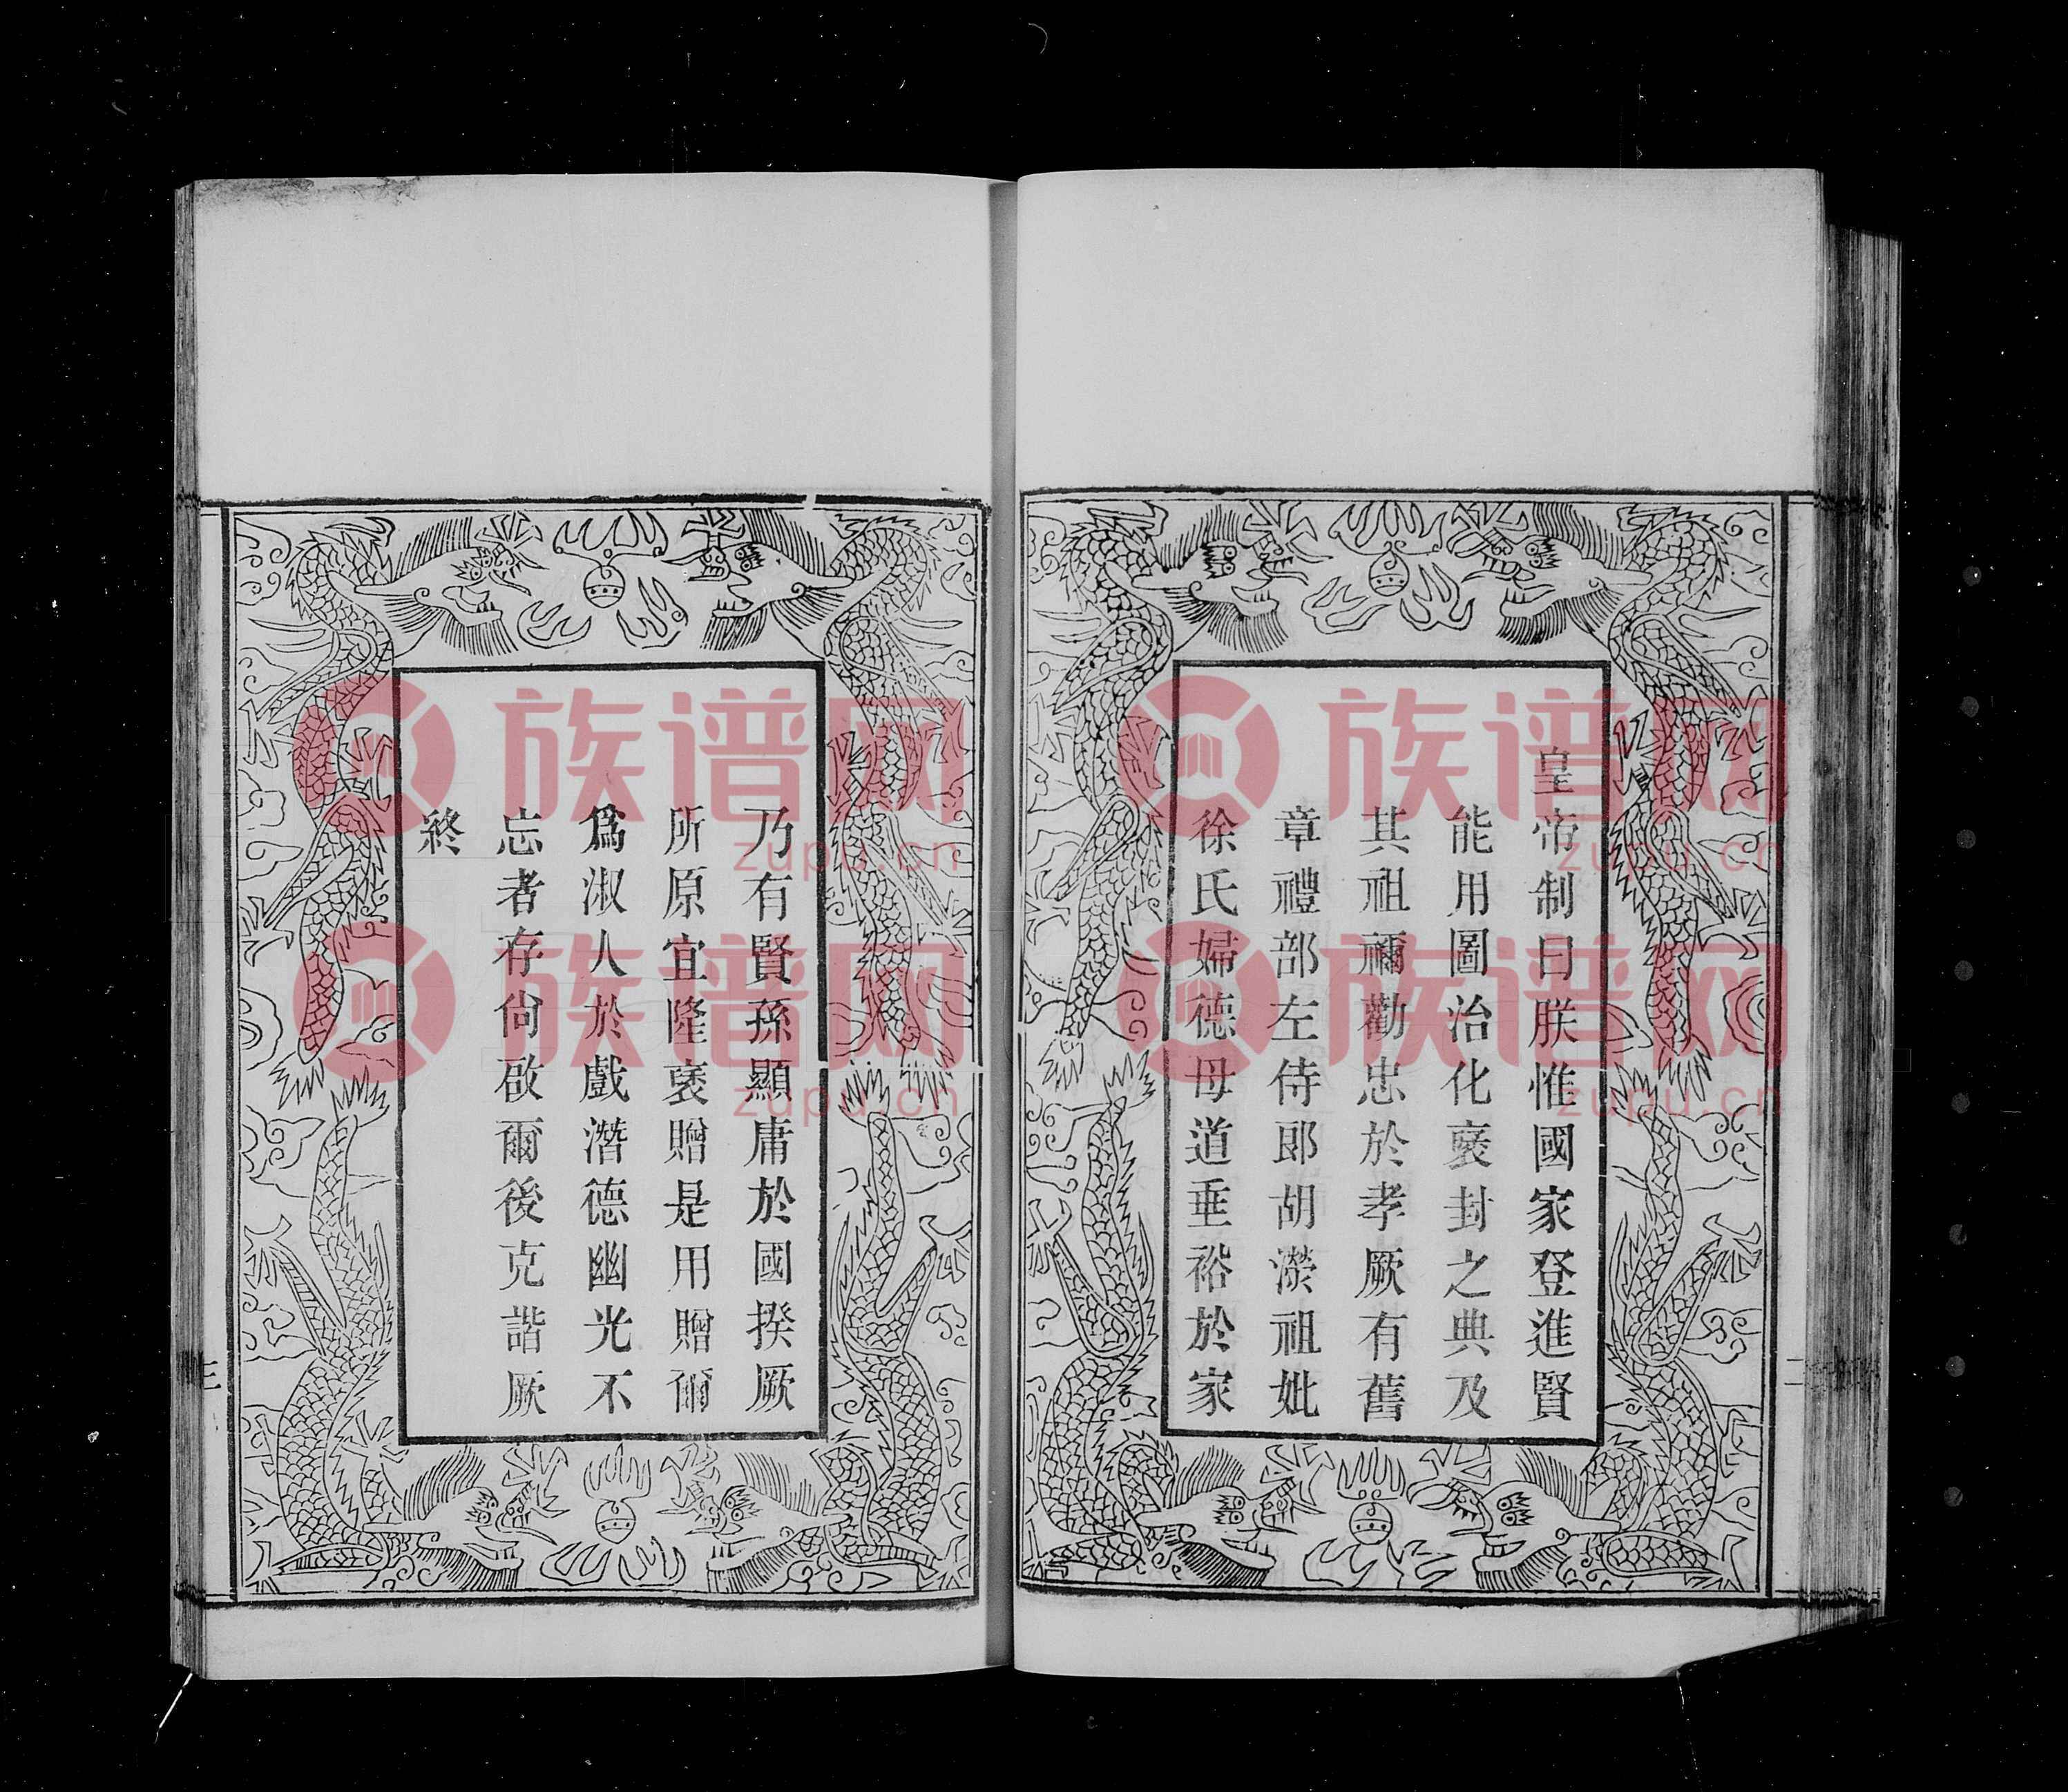 皇帝制曰朕惟國家登進賢
能用圖治化褒封之典及
其祖禰勸忠於孝厥有舊
章禮部左侍郎胡濙祖妣
徐氏婦德母道垂裕於家
二
乃有賢孫顯庸於國揆厥
所原宜隆褒贈是用贈爾
為淑人於戲潛德幽光不
忘者存尙啟爾後克諧厥
終
三
族谱网
zupu.cn
族谱网
zupu.cn
族谱网
zupu.cn
族谱网
zupu.cn